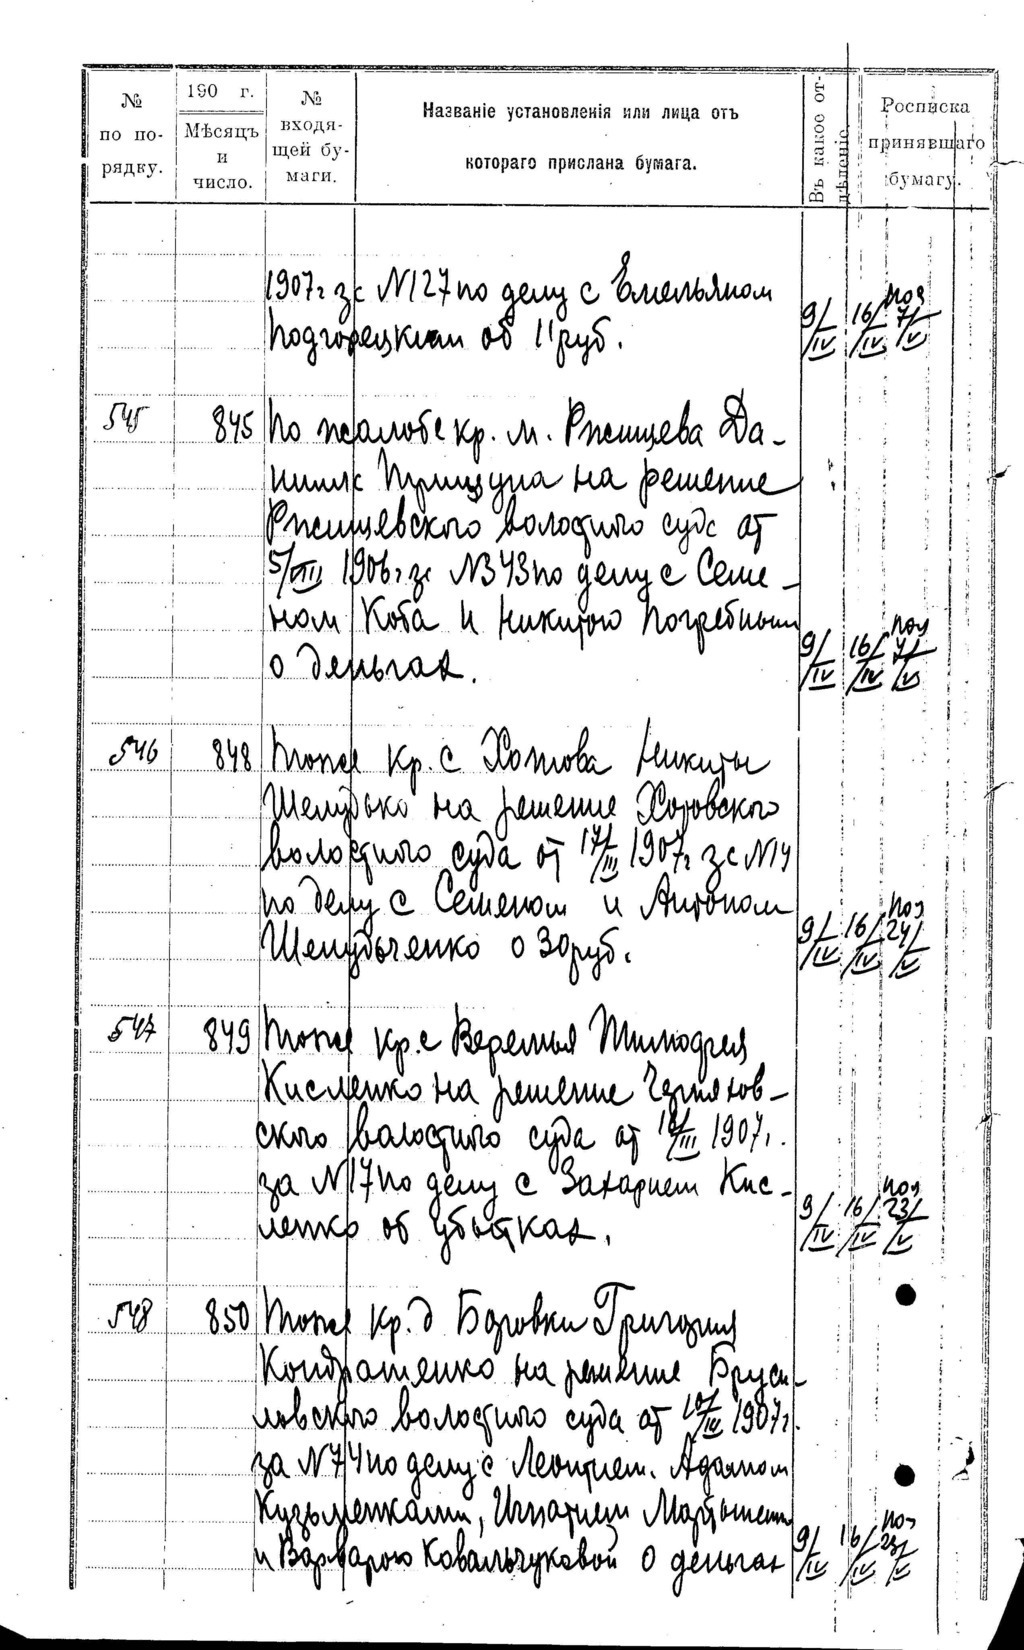 № по по-рядку.
190 г.
Мѣсяцъ и число.
№ входя-щей бу-маги.
Названіе установленія или лица отъ
котораго прислана бумага.
Въ какое от-дѣленіе.
Росписка принявшаго бумагу.
1907г за №127 по делу с Емельяном
Подгорецким об 11 руб. 9/IV 16/IV 7/V
545 845 По жалобе кр. м. Ржищева Да-
нила Прищупа на решение
Ржищевского волостного суда от
5/VIII 1906г за №343 по делу с Семе-
ном Коба и Никитою Погребным
о деньгах. 9/IV 16/IV 7/V
546 848 Тоже кр. с Хотова Никиты
Шелудько на решение Хотовского
волостного суда от 17/III 1907г за №14
по делу с Семеном и Антоном
Шелудченко о 30 руб. 9/IV 16/IV 24/V
547 849 Тоже кр. с Веремья Тимофея
Кисленко на решение Черняхов-
ского волостного суда от /III 1907г.
за №17 по делу с Захарием Кис-
ленко об убытках. 9/IV 16/IV 23/V
548 850 Тоже кр. д Боровки Григория
Кондратенко на решение Бруси-
ловского волостного суда от 1907г.
за №74 по делу с Леонтием, Адамом
Кузьменками, Игнатием
и Варварою Ковальчуковой о деньгах 9/IV 16/IV 23/V